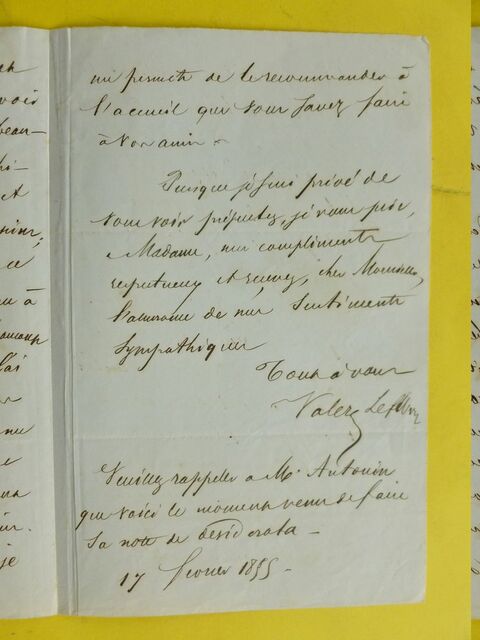 me permets de le recommander à
l'accueil que vous savez faire
à vos amis.
Puisque je suis privé de
vous voir, je vous prie,
Madame, mes compliments
respectueux et recevez, cher Monsieur,
l'assurance de mes sentiments
sympathiques
Tout à vous
Valery
Veuillez rappeler à Mr. Antonin
que voici le moment venu de faire
sa note de desiderata —
17 février 1855 -
ois
beau-
hi-
et
ce
à
je